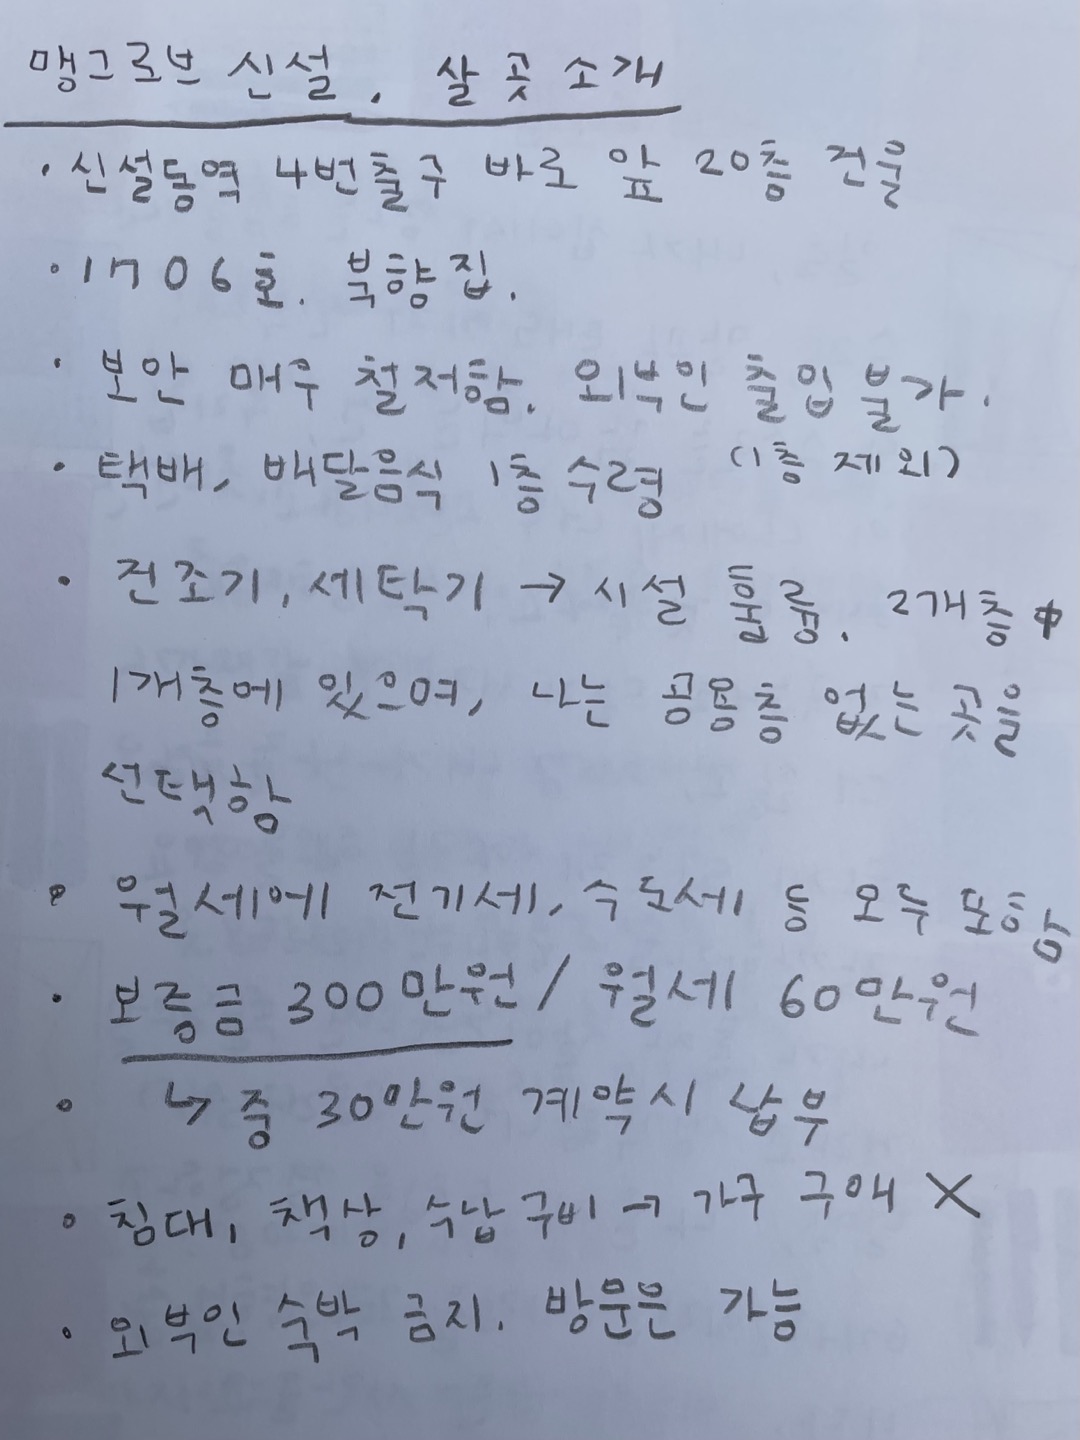 맹그로브 신설, 살 곳 소개
· 신설동역 4번출구 바로 앞 20층 건물
· 1706호. 북향집.
· 보안 매우 철저함. 외부인 출입 불가.
(1층 제외)
· 택배, 배달음식 1층 수령
· 건조기, 세탁기 → 시설 훌륭. 2개층 中
1개층에 있으며, 나는 공용층 없는 곳을
선택함
· 월세에 전기세, 수도세 등 모두 포함
· 보증금 300만원 / 월세 60만원
· ↳ 중 30만원 계약시 납부
· 침대, 책상, 수납 구비 → 가구 구매 X
· 외부인 숙박 금지. 방문은 가능